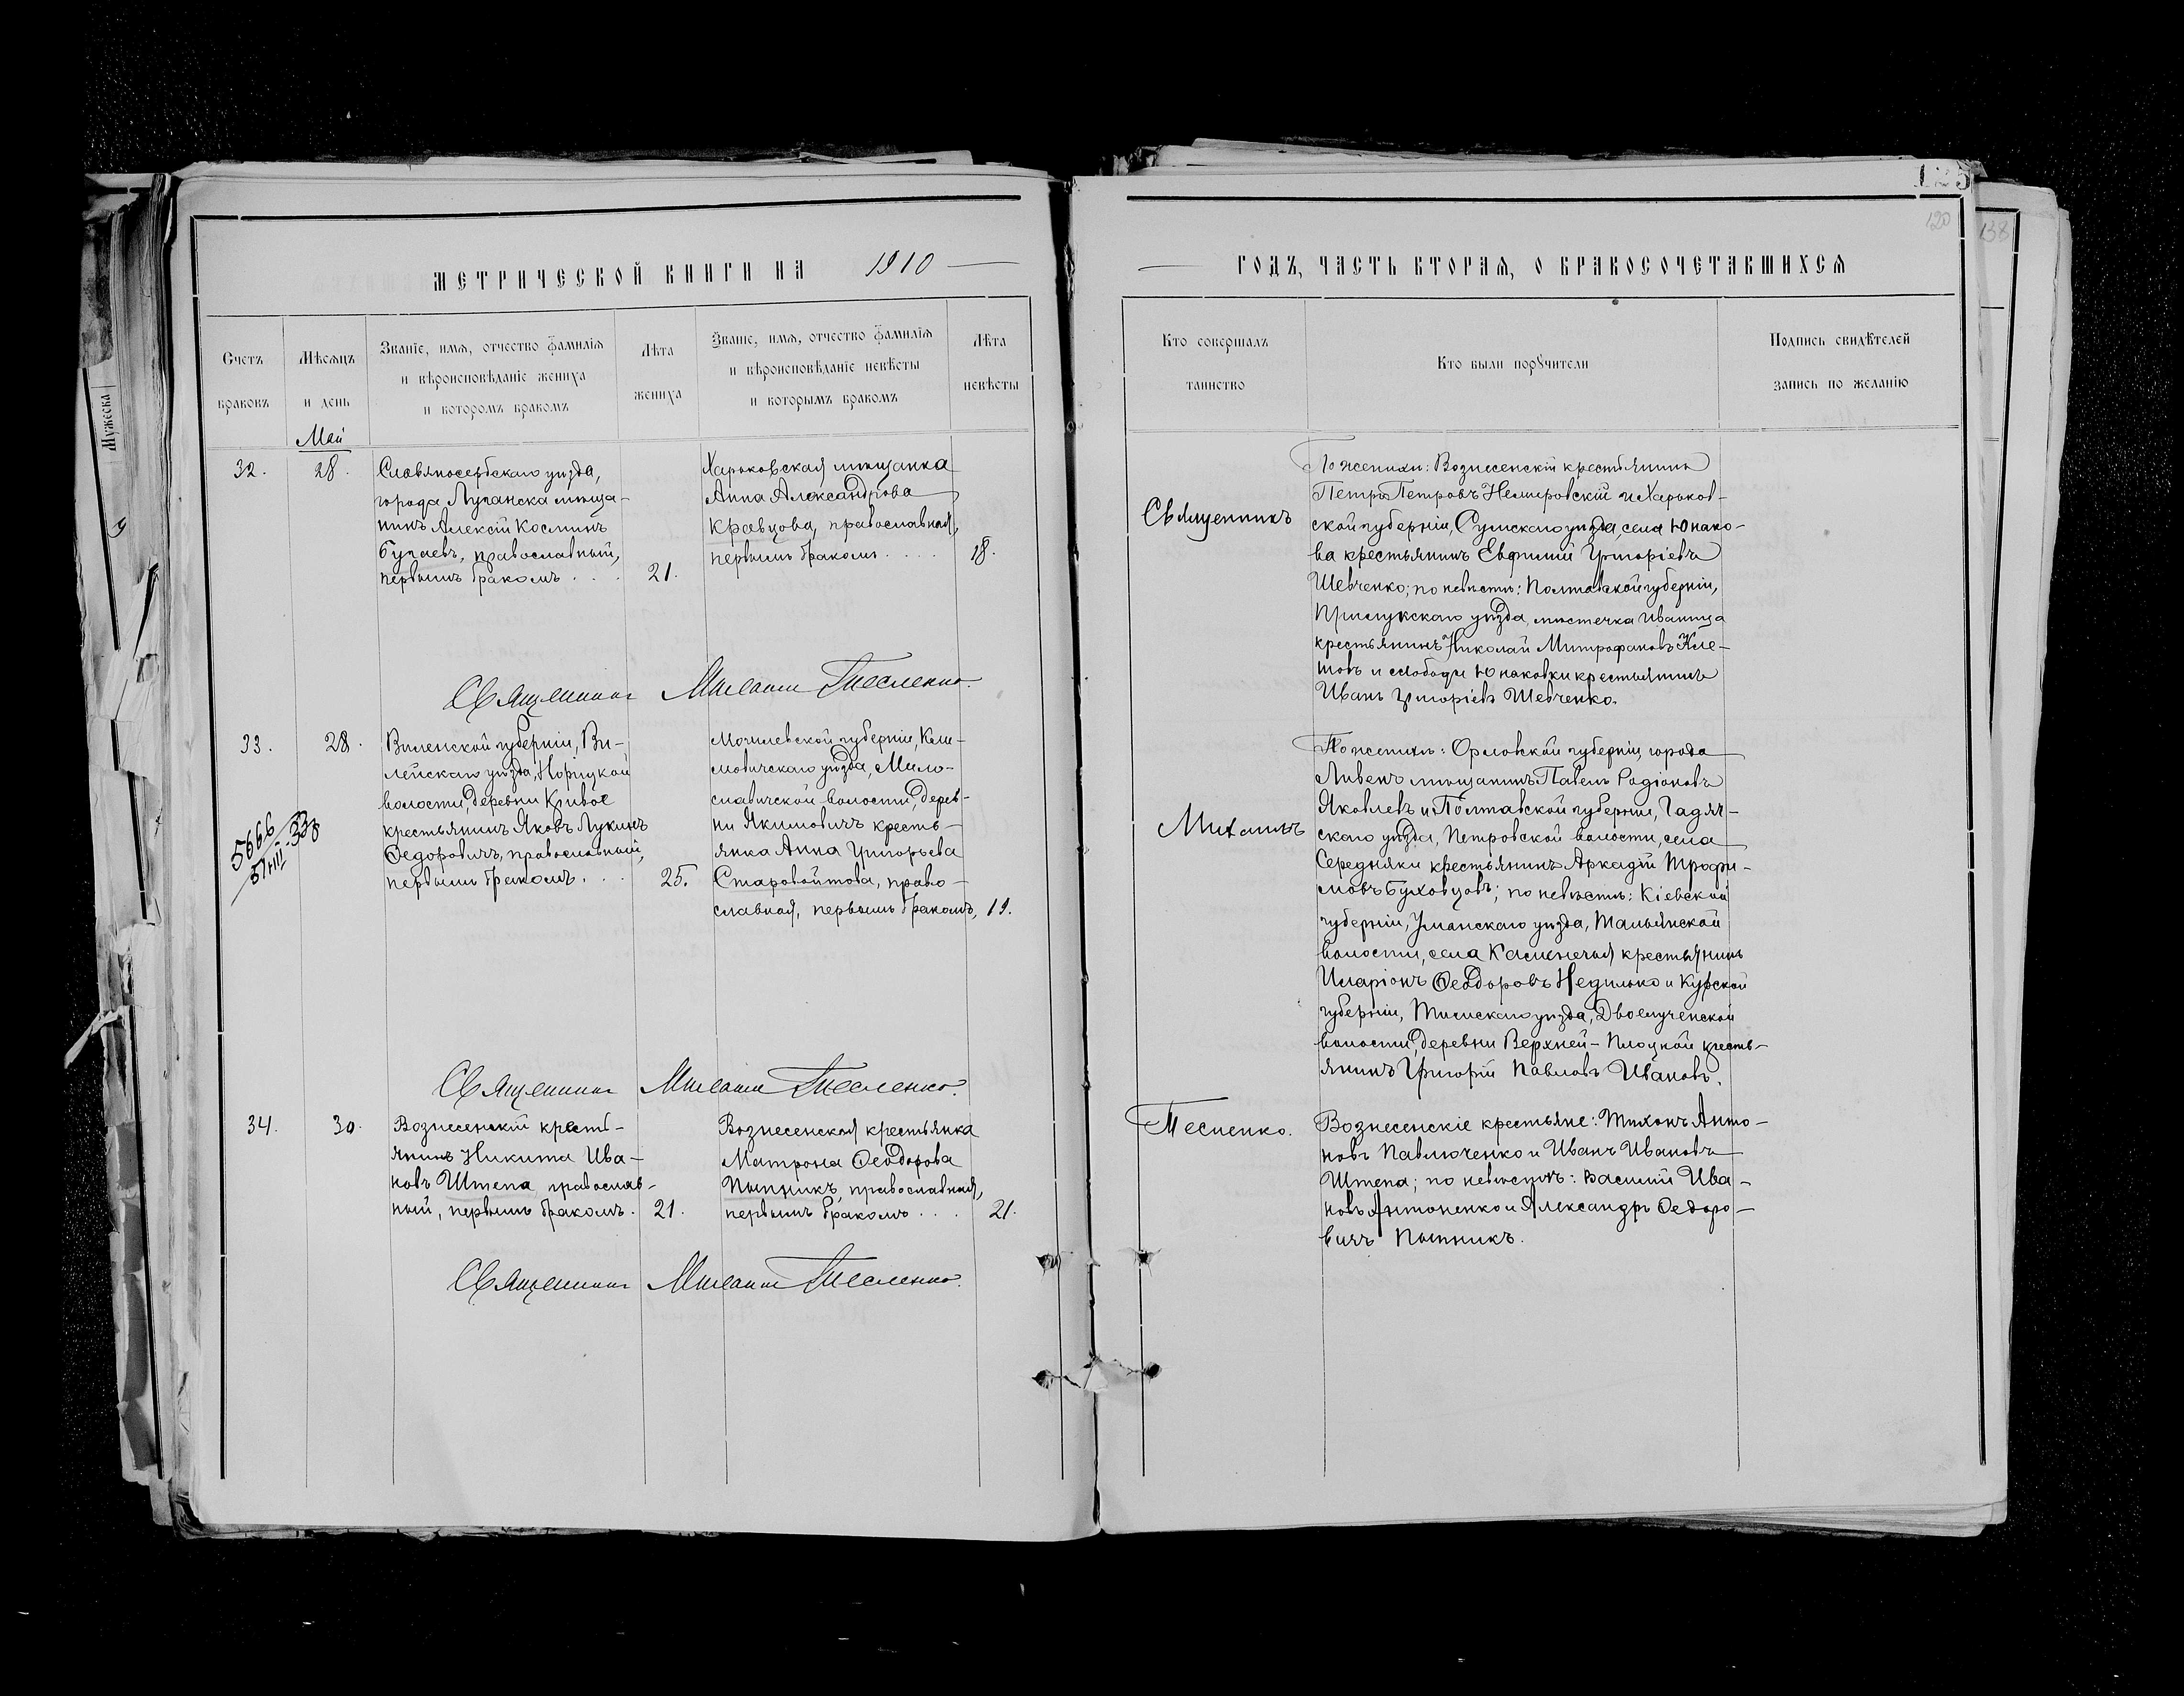 125
120
138
Мужеска
МЕТРИЧЕСКОЙ КНИГИ НА 1910
ГОДЪ, ЧАСТЬ ВТОРАЯ, О БРАКОСОЧЕТАВШИХСЯ
Счетъ
браковъ
Мѣсяцъ
и день
Званіе, имя, отчество фамилія
и вѣроисповѣданіе жениха
и которомъ бракомъ
Лѣта
жениха
Званіе, имя, отчество фамилія
и вѣроисповѣданіе невѣсты
и которымъ бракомъ
Лѣта
невѣсты
Кто совершалъ
таинство
Кто были поручители
Подпись свидѣтелей
запись по желанію
Май
32.
28.
Славяносербскаго уѣзда,
города Луганска мѣща-
нинъ Алексій Косминъ
Бугаевъ, православный,
первымъ бракомъ . . .
21.
Харьковская мѣщанка
Анна Александрова
Кравцова, православная,
первымъ бракомъ . . . .
18.
Священникъ
По женихѣ: Вознесенскій крестьянинъ
Петръ Петровъ Немировскій и Харьков-
ской губерніи, Сумскаго уѣзда, села Юнако-
ва крестьянинъ Евфимій Григоріевъ
Шевченко; по невѣстѣ: Полтавской губерніи,
Прилукскаго уѣзда, мѣстечка Иваница
крестьянинъ Николай Митрофановъ Кле-
товъ и слободы Юнаковки крестьянинъ
Иванъ Григоріевъ Шевченко.
Священникъ Михаилъ Тесленко.
33.
28.
5666
Виленской губерніи, Ви-
лейскаго уѣзда, Норицкой
волости, деревни Кривое
крестьянинъ Яковъ Лукинъ
Федоровичъ, православный,
первымъ бракомъ . . .
25.
Могилевской губерніи, Кли-
мовичскаго уѣзда, Мило-
славичской волости, дерев-
ни Якимовичъ кресть-
янка Анна Григорьева
Старовойтова, право-
славная, первымъ бракомъ,
19.
Михаилъ
По женихѣ: Орловской губерніи, города
Ливенъ мѣщанинъ Павелъ Родіоновъ
Яковлевъ и Полтавской губерніи, Гадяч-
скаго уѣзда, Петровской волости, села
Середняки крестьянинъ Аркадій Трофи-
мовъ Буховцовъ; по невѣстѣ: Кіевской
губерніи, Уманскаго уѣзда, Тальянской
волости, села Каменечья крестьянинъ
Иларіонъ Феодоровъ Недилько и Курской
губерніи, Тимскаго уѣзда, Двоелученской
волости, деревни Верхней-Плоцкой кресть-
янинъ Григорій Павловъ Ивановъ.
Священникъ Михаилъ Тесленко.
34.
30.
Вознесенскій кресть-
янинъ Никита Ива-
новъ Штепа православ-
ный, первымъ бракомъ.
21.
Вознесенская крестьянка
Матрона Феодорова
Пытникъ, православная,
первымъ бракомъ . . .
21.
Тесленко.
Вознесенскіе крестьяне: Тихонъ Анто-
новъ Павлюченко и Иванъ Ивановъ
Штепа; по невѣстѣ: Василій Ива-
новъ Антоненко и Александръ Федоро-
вичъ Пытникъ.
Священникъ Михаилъ Тесленко.